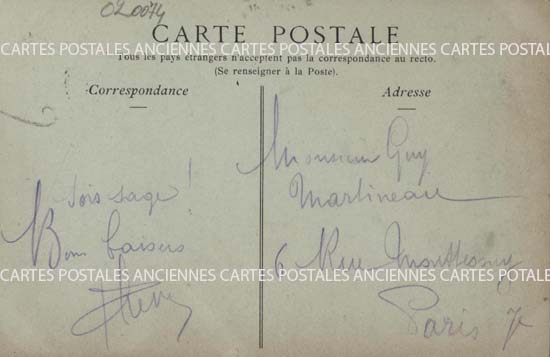 020074
CARTE POSTALE
CARTES POSTALES ANCIENNES CARTES POSTALES ANCIENNES CARTES POSTALES ANCIENNES CARTES POSTALES
Tous les pays étrangers n'acceptent pas la correspondance au recto.
(Se renseigner à la Poste).
Correspondance
Sois sage!
Bons baisers
Adresse
Monsieur Guy
Martineau
6 Rue Monttessuy
Paris 7e
CARTES POSTALES ANCIENNES CARTES POSTALES ANCIENNES CARTES POSTALES ANCIENNES CARTES POSTALES